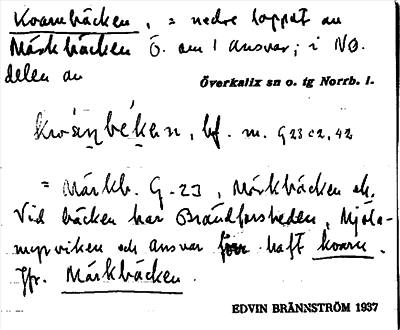 Kvarnbäcken, = nedre loppet av
Märkbäcken Ö. om 1 Ansvar; i NO.
delen av
Överkalix sn o. tg Norrb. l.
bf. m. G23 c2, 42
= Märkb. G-23, Mörkbäcken ek.
Vid bäcken har Brändforsheden, Mjöla-
myrviken och Ansvar haft kvarn.
Jfr. Märkbäcken.
EDVIN BRÄNNSTRÖM 1937